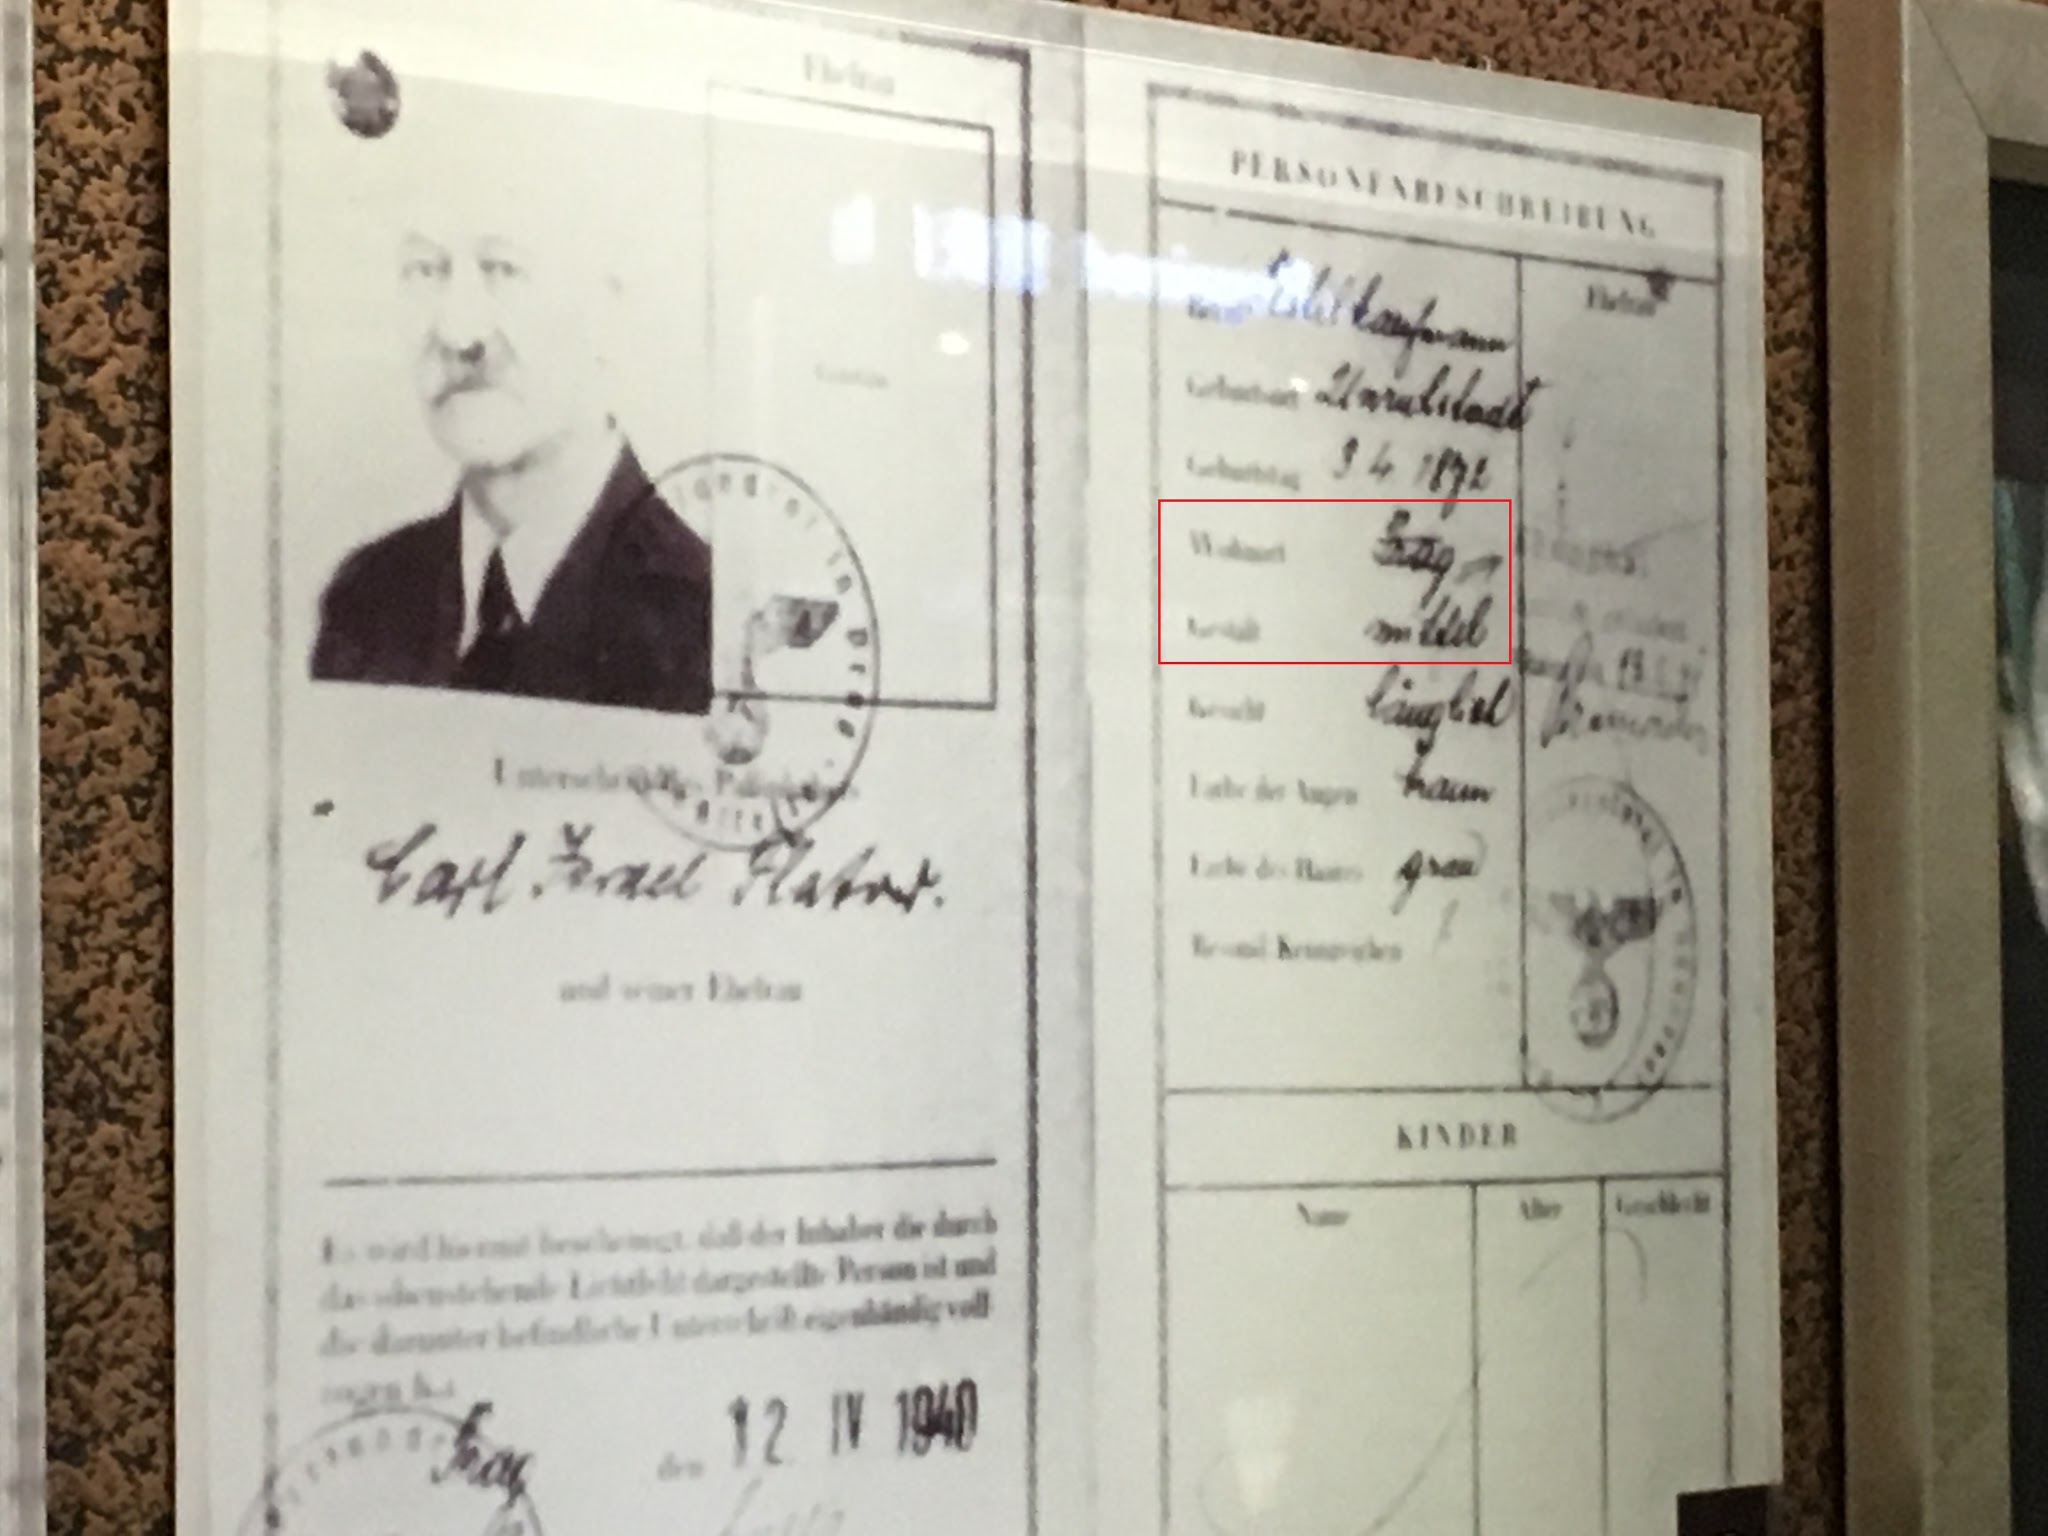 Ehefrau
Unterschrift des Paßinhabers
Carl Israel
und seiner Ehefrau
Es wird hiermit bescheinigt, daß der Inhaber die durch
das obenstehende Lichtbild dargestellte Person ist und
die darunter befindliche Unterschrift eigenhändig voll-
zogen hat
Prag den 12 IV 1940
PERSONENBESCHREIBUNG
Ehefrau
Beruf
Geburtsort Unruhstadt
Geburtstag 3 4 1872
Wohnort Prag
Gestalt mittel
Gesicht länglich
Farbe der Augen braun
Farbe des Haares grau
Besond. Kennzeichen
KINDER
Name Alter Geschlecht